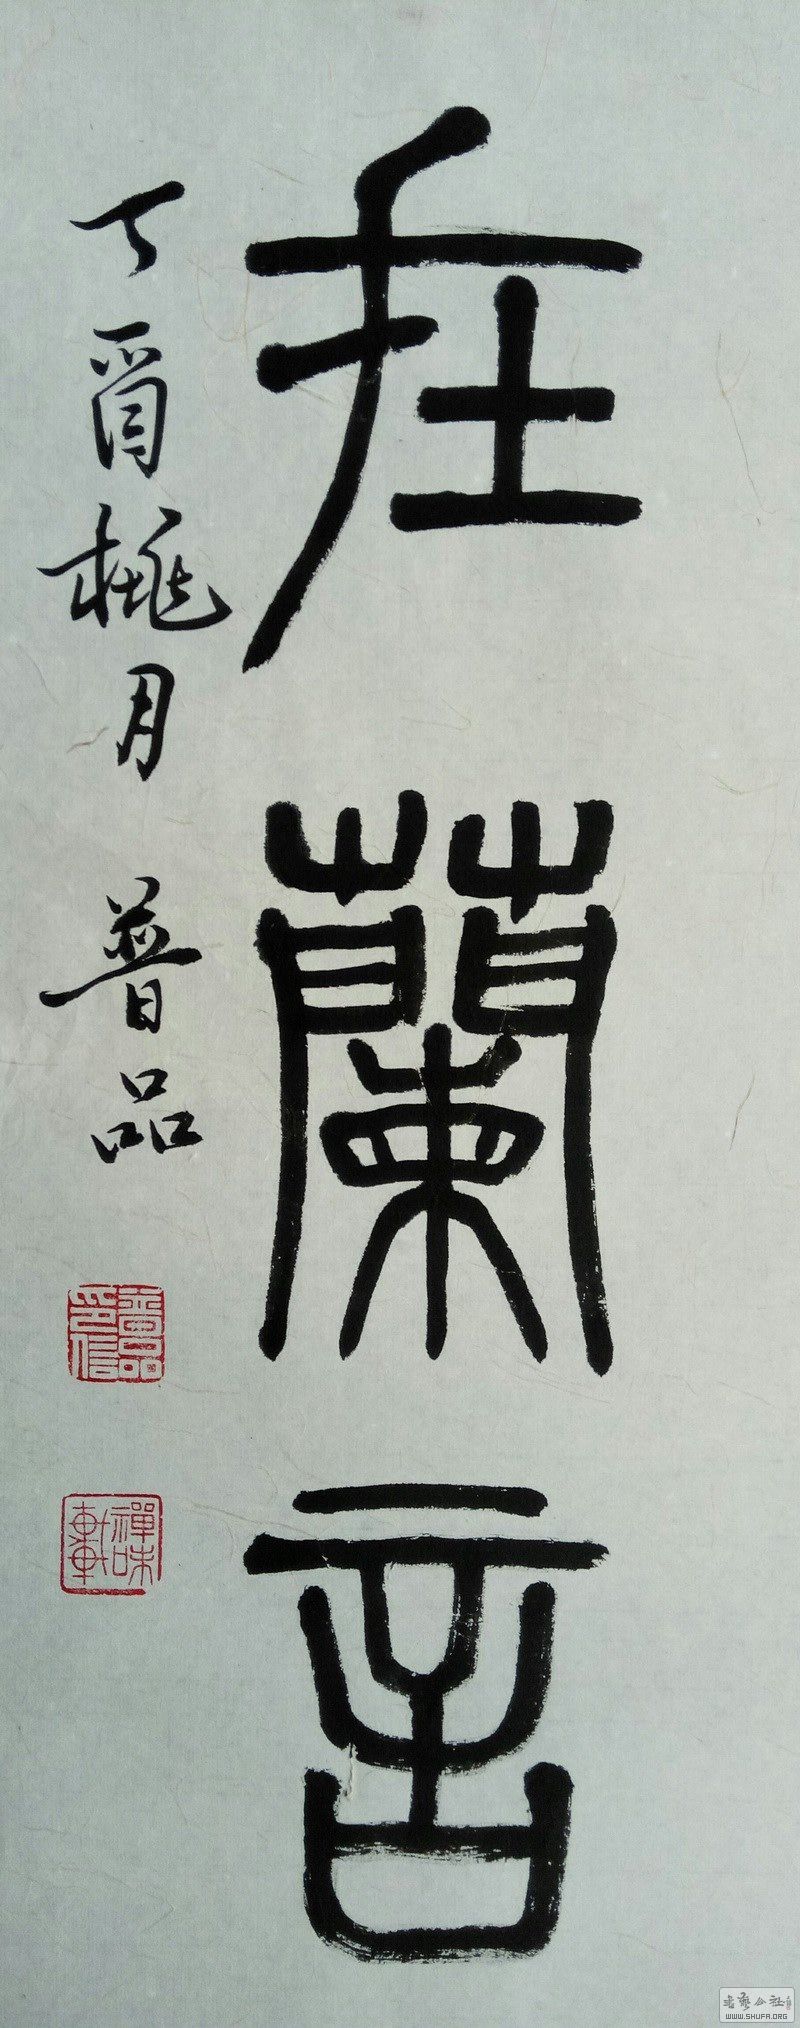 在蘭言
丁酉桃月 普品
普品印信
禪味軒
书艺公社
WWW.SHUFA.ORG